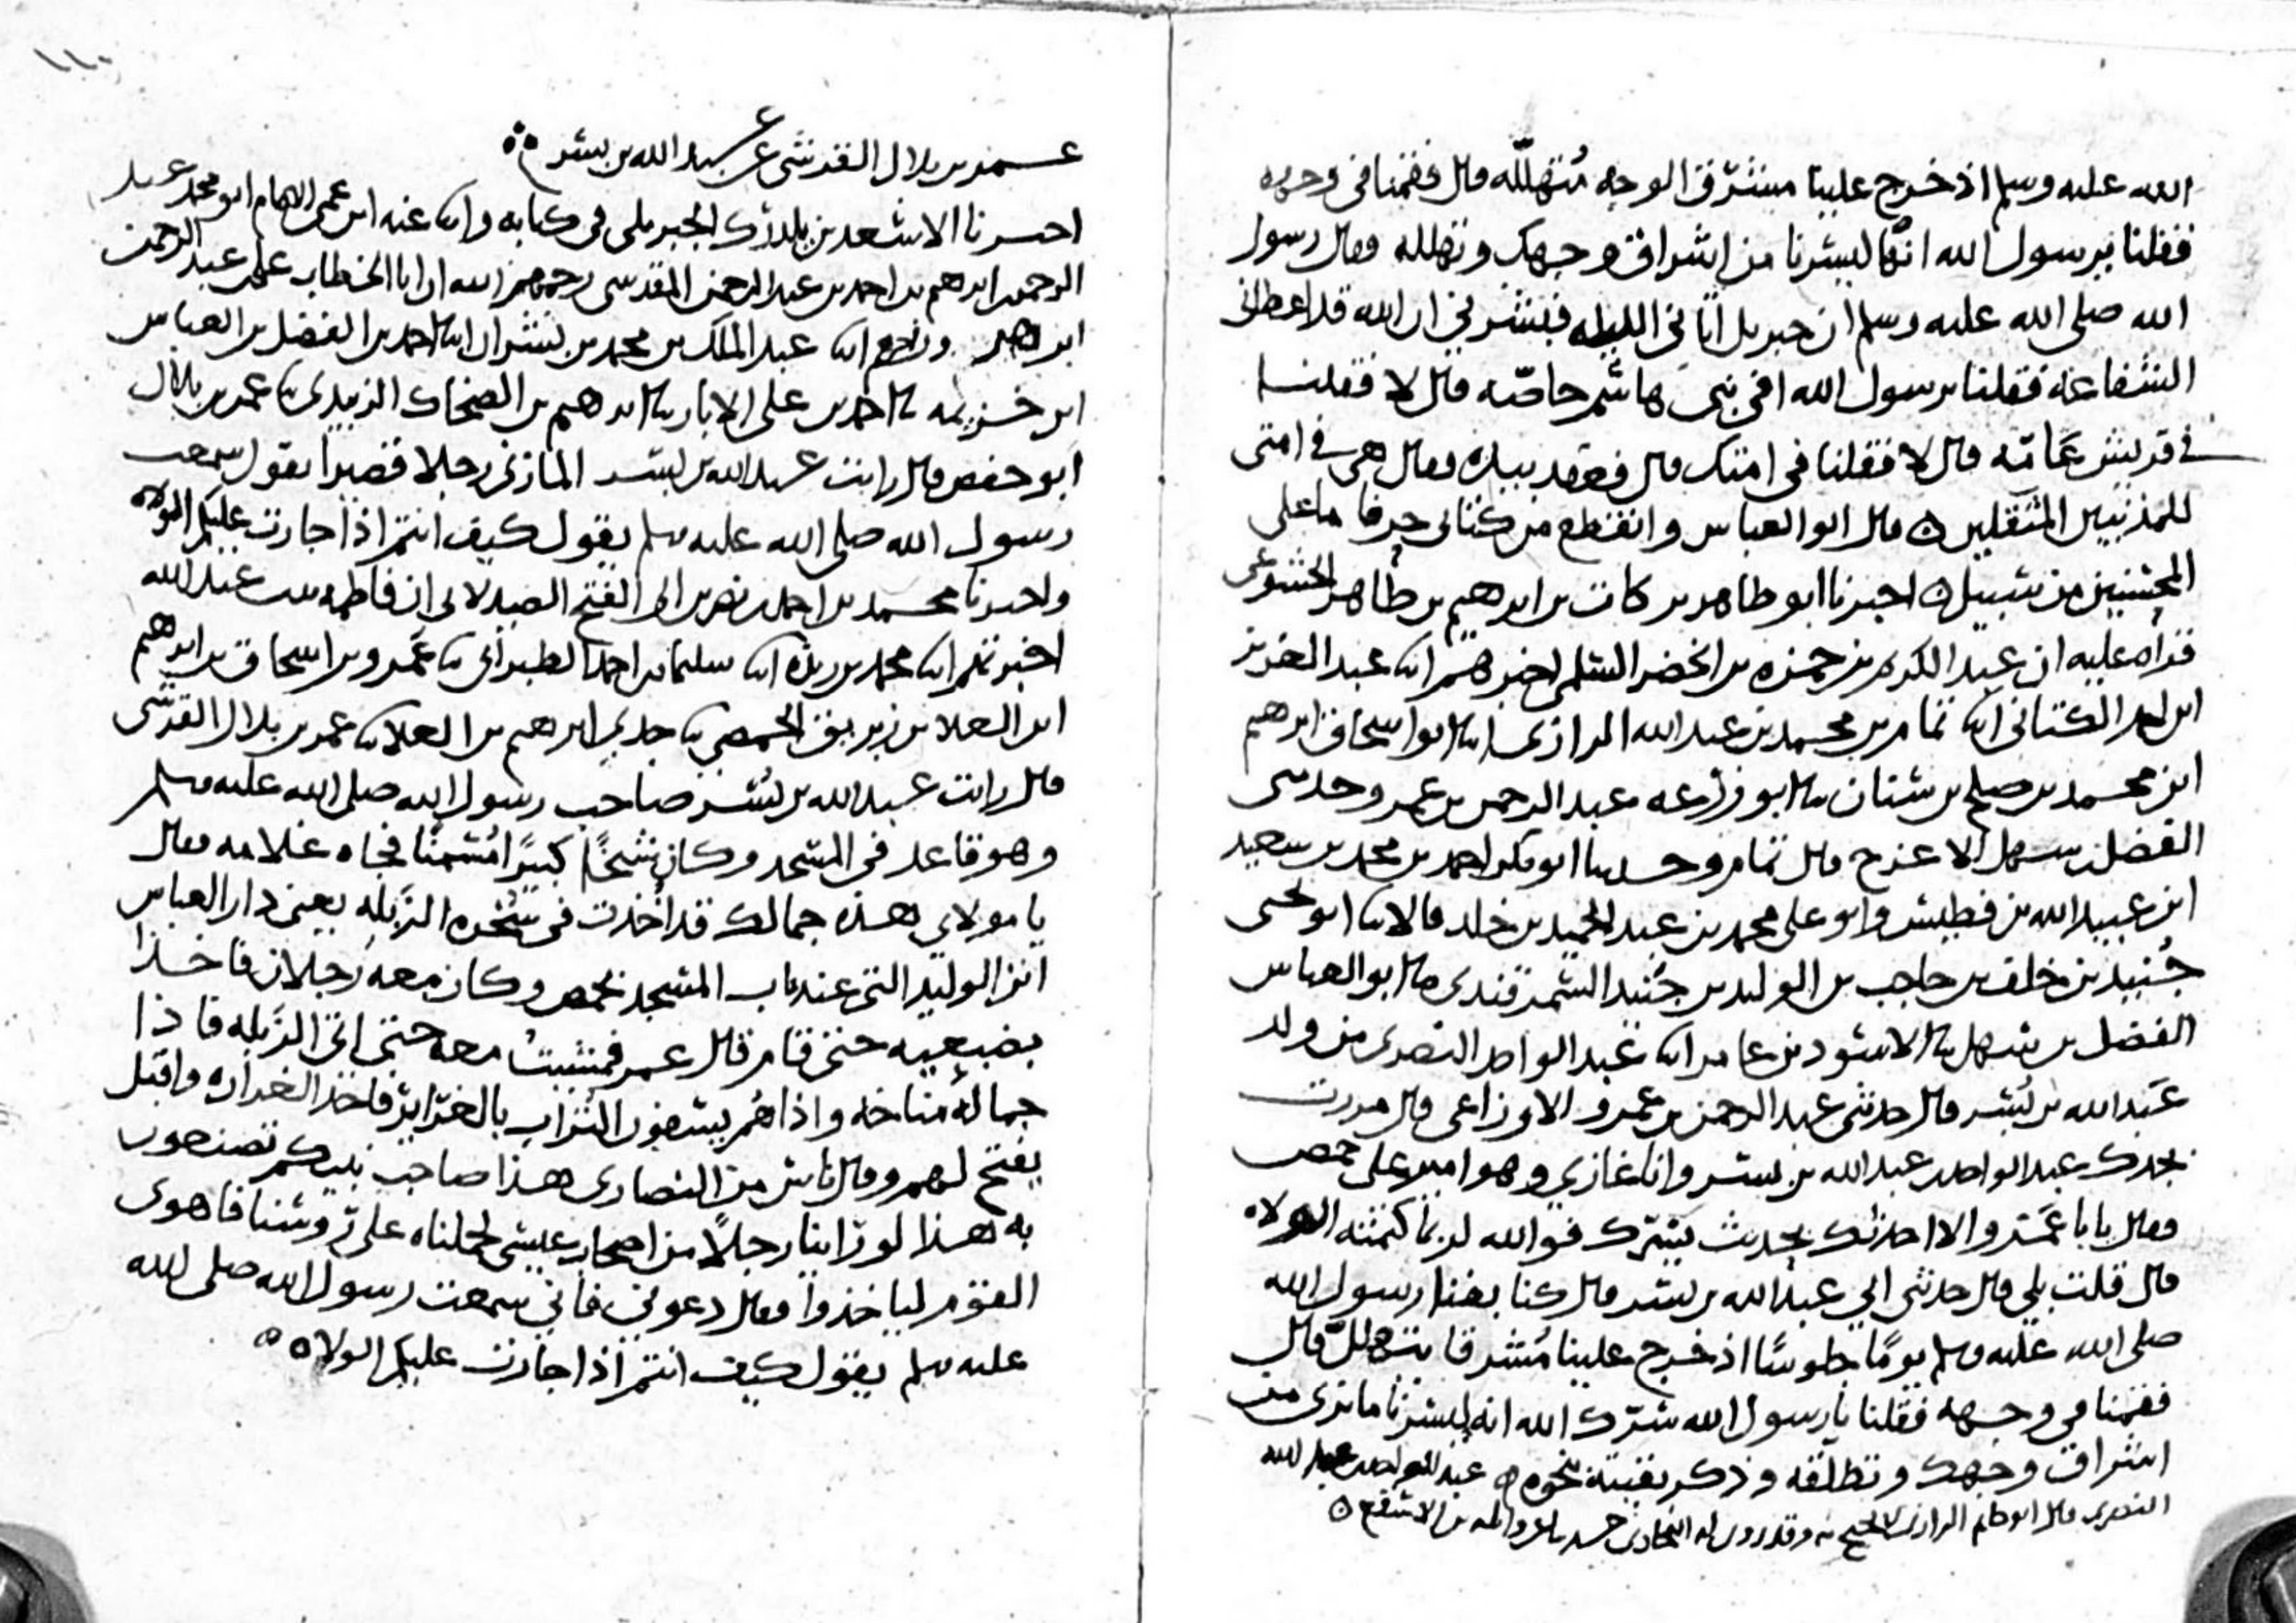 الله عليه وسلم اذ خرج علينا مشرق الوجه مُتهللّه قال فقمنا في وجهه
فقلنا يرسول الله انّها ليسرنا من اشراق وجهك وتهلله فقال رسول
الله صلى الله عليه وسلم ان جبريل اتاني الليلة فبشرني ان الله قد اعطاني
الشفاعة فقلنا يرسول الله افي بني هاشم خاصّه قال لا فقلنا
في قريش عَامّه قال لا فقلنا في امتك قال فعقد بيده فقال هي في امتى
للمذنبين المثقلين ه قال ابو العباس وانقطع من كتابي حرفا ما على
من ه اخبرنا ابو طاهر بركات بن ابرهيم بن طاهر الخشوعى
قراه عليه ان عبد الكريم بن حمزه بن الخضر السلمى اخبرهم ابنا عبد العزيز
ابن احمد الكتاني ابنا تمام بن محمد بن عبد الله الرازى ابنا ابو اسحاق ابرهيم
ابن محمد بن صلح بن سنان ثنا ابو زرعه عبد الرحمن بن عمرو حدثنى
الفضل بن سهل الاعرج قال تمام وحدثنا ابو بكر احمد بن محمد بن سعيد
ابن عبيد الله بن فطيس وابو على محمد بن عبد الحميد بن خلد قالا ثنا ابو يحيى
جُنيد بن خلف بن حاجب بن الوليد بن جُنيد السمرقندى ثنا ابو العباس
الفضل بن سهل ثنا الاسود بن عامر ابنا عبد الواحد النصرى من ولد
عَبد الله بن بُسر قال حدثنى عبد الرحمن بن عمرو الاوزاعى قال مررت
بجدك عبد الواحد بن عبد الله بن بسر وانا غازي وهو امير على حمص
فقال يابا عَمرو الا احدثك بحديث يسّرك فوالله لربما كتمته الولاه
قال قلت بلى قال حدثنى ابي عبد الله بن بسر قال كنا بفنا رسول الله
صلى الله عليه وسلم يومًا جلوسًا اذ خرج علينا مُشرقا يتهللّ قال
فقمنا في وجهه فقلنا يا رسول الله سَرّك الله انه ليسرنا ما نرى من
اشراق وجهك وتطلقه وذكر بقيته نحوه ه عبد الواحد بن عبد الله
النصرى قال ابو حاتم الرازي لا يحتج به وقد روى له البخارى حديثا عن واثله بن الاسقع ه
١١٠
عمر بن بلال القرشى عن عبد الله بن بسر ه
اخبرنا الاسعد بن يلدرك الجبريلى فى كتابه وابنا عنه ابن عمى الامام ابو محمد عبد
الرحمن بن ابرهيم بن احمد بن عبد الرحمن المقدسى رحمهم الله ان ابا الخطاب على بن عبد الرحمن
ابن اخبرهم ابنا عبد الملك بن محمد بن بشران ابنا احمد بن الفضل بن العباس
ابن خزيمه ثنا احمد بن على الابار ثنا ابرهيم بن الضحاك الزبيدى ثنا عمر بن بلال
ابو حفص قال رايت عبد الله بن بسر المازنى رجلا قصيرا يقول سمعت
رسول الله صلى الله عليه وسلم يقول كيف انتم اذا جارت عليكم الولاه
واخبرنا محمد بن احمد بن نصر بن ابى الفتح الصيدلاني ان فاطمه بنت عبد الله
اخبرتهم ابنا محمد بن ريذه ابنا سليمان بن احمد الطبراني ثنا عَمرو بن اسحاق بن ابرهيم
ابن العلا بن زبريق الحمصي ثنا جدي ابرهيم بن العلا ثنا عمر بن بلال القرشى
قال رايت عبد الله بن بُسر صاحب رسول الله صلى الله عليه وسلم
وهو قاعد في المسجد وكان شيخًا كبيرًا مُسمنًا فجاه غلامه فقال
يا مولاي هذه جمالك قد اُخذت في سُخره الزَبله يعنى دار العباس
ابن الوليد التى عند باب المسجد بحمص وكان معه رجلان فاخذا
بضبعيه حتى قام قال عمر فمشيت معه حتى اتى الزَبله فاذا
جماله مُناخه واذا هُم يسفون التراب بالغراير فاخذ الغراره واقبل
يفتح لهم وقال ناس من النصارى هذا صاحب نبيكم تصنعون
به هذا لو راينا رجلًا من اصحاب عيسى لحملناه على روسنا فاهوى
القوم لياخذوا فقال دعوني فاني سمعت رسول الله صلى الله
عليه وسلم يقول كيف انتم اذا جارت عليكم الولاه ه